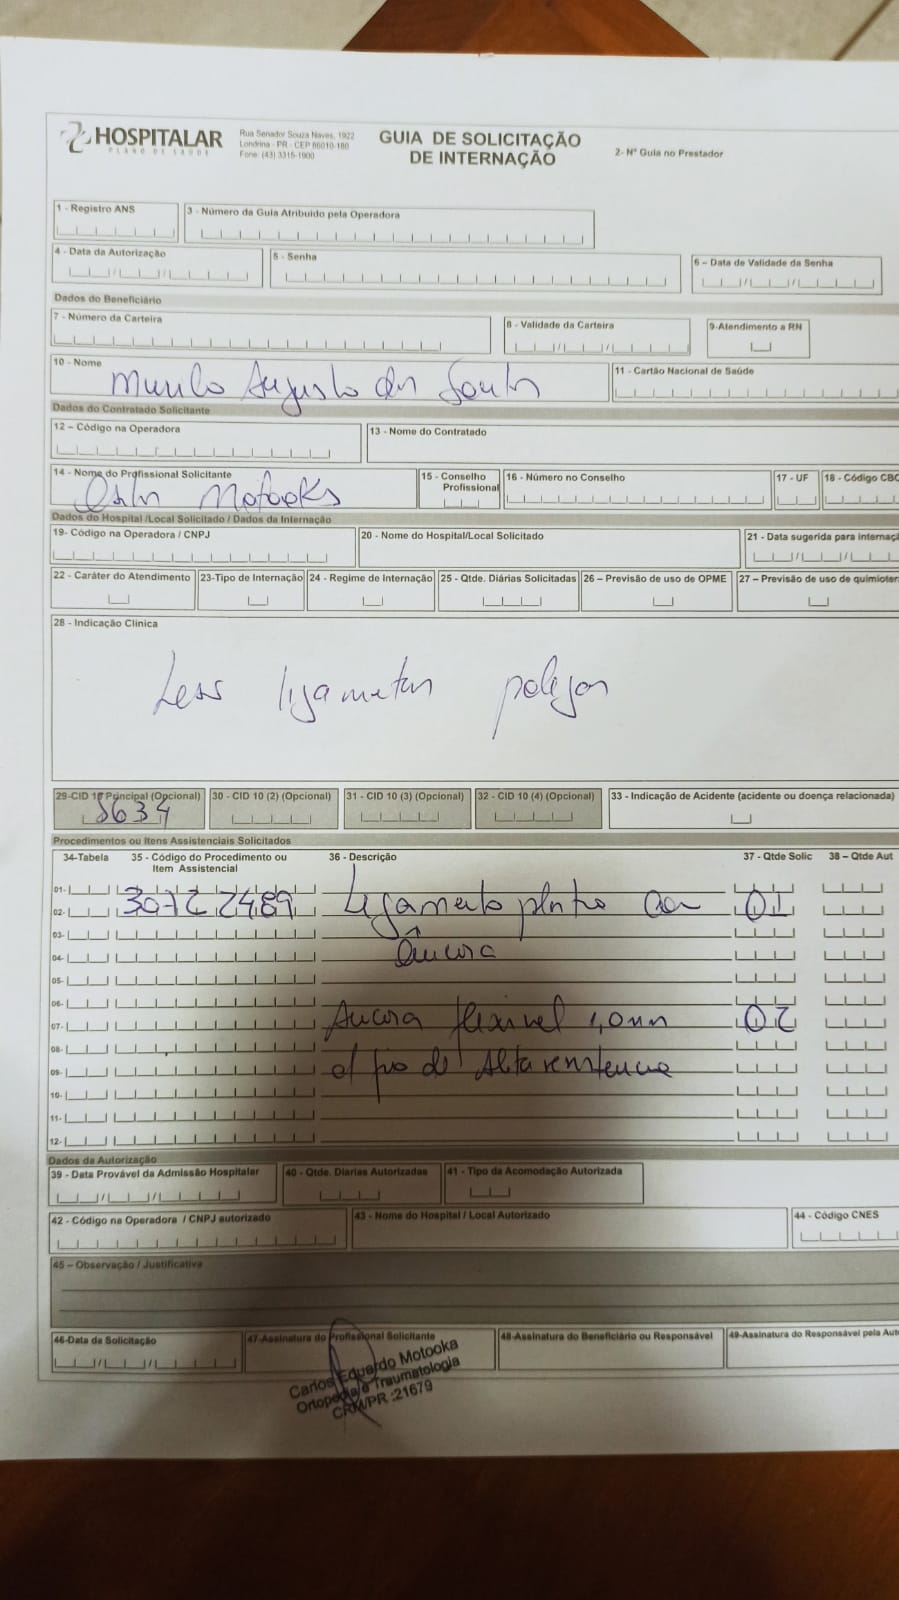 HOSPITALAR
PLANO DE SAÚDE
Rua Senador Souza Naves, 1922
Londrina - PR - CEP 86010-160
Fone: (43) 3315-1900
GUIA DE SOLICITAÇÃO
DE INTERNAÇÃO
2- Nº Guia no Prestador
1 - Registro ANS
3 - Número da Guia Atribuído pela Operadora
4 - Data da Autorização
5 - Senha
6 – Data de Validade da Senha
Dados do Beneficiário
7 - Número da Carteira
8 - Validade da Carteira
9-Atendimento a RN
10 - Nome
Murilo Augusto
11 - Cartão Nacional de Saúde
Dados do Contratado Solicitante
12 – Código na Operadora
13 - Nome do Contratado
14 - Nome do Profissional Solicitante
Motooka
15 - Conselho
Profissional
16 - Número no Conselho
17 - UF
18 - Código CBO
Dados do Hospital /Local Solicitado / Dados da Internação
19- Código na Operadora / CNPJ
20 - Nome do Hospital/Local Solicitado
21 - Data sugerida para internaç
22 - Caráter do Atendimento
23-Tipo de Internação
24 - Regime de Internação
25 - Qtde. Diárias Solicitadas
26 – Previsão de uso de OPME
27 – Previsão de uso de quimioter
28 - Indicação Clínica
29-CID 10 Principal (Opcional)
S634
30 - CID 10 (2) (Opcional)
31 - CID 10 (3) (Opcional)
32 - CID 10 (4) (Opcional)
33 - Indicação de Acidente (acidente ou doença relacionada)
Procedimentos ou Itens Assistenciais Solicitados
34-Tabela
35 - Código do Procedimento ou
Item Assistencial
36 - Descrição
37 - Qtde Solic
38 – Qtde Aut
01-
02- 30722489 Ligamento 01
03-
04- Âncora
05-
06-
07- Ancora flexível 1,0mm 02
08-
09- fio de Alta resistencia
10-
11-
12-
Dados da Autorização
39 - Data Provável da Admissão Hospitalar
40 - Qtde. Diárias Autorizadas
41 - Tipo da Acomodação Autorizada
42 - Código na Operadora / CNPJ autorizado
43 - Nome do Hospital / Local Autorizado
44 - Código CNES
45 – Observação / Justificativa
46-Data da Solicitação
47-Assinatura do Profissional Solicitante
48-Assinatura do Beneficiário ou Responsável
49-Assinatura do Responsável pela Aut
Carlos Eduardo Motooka
Ortopedia e Traumatologia
CRM/PR :21679